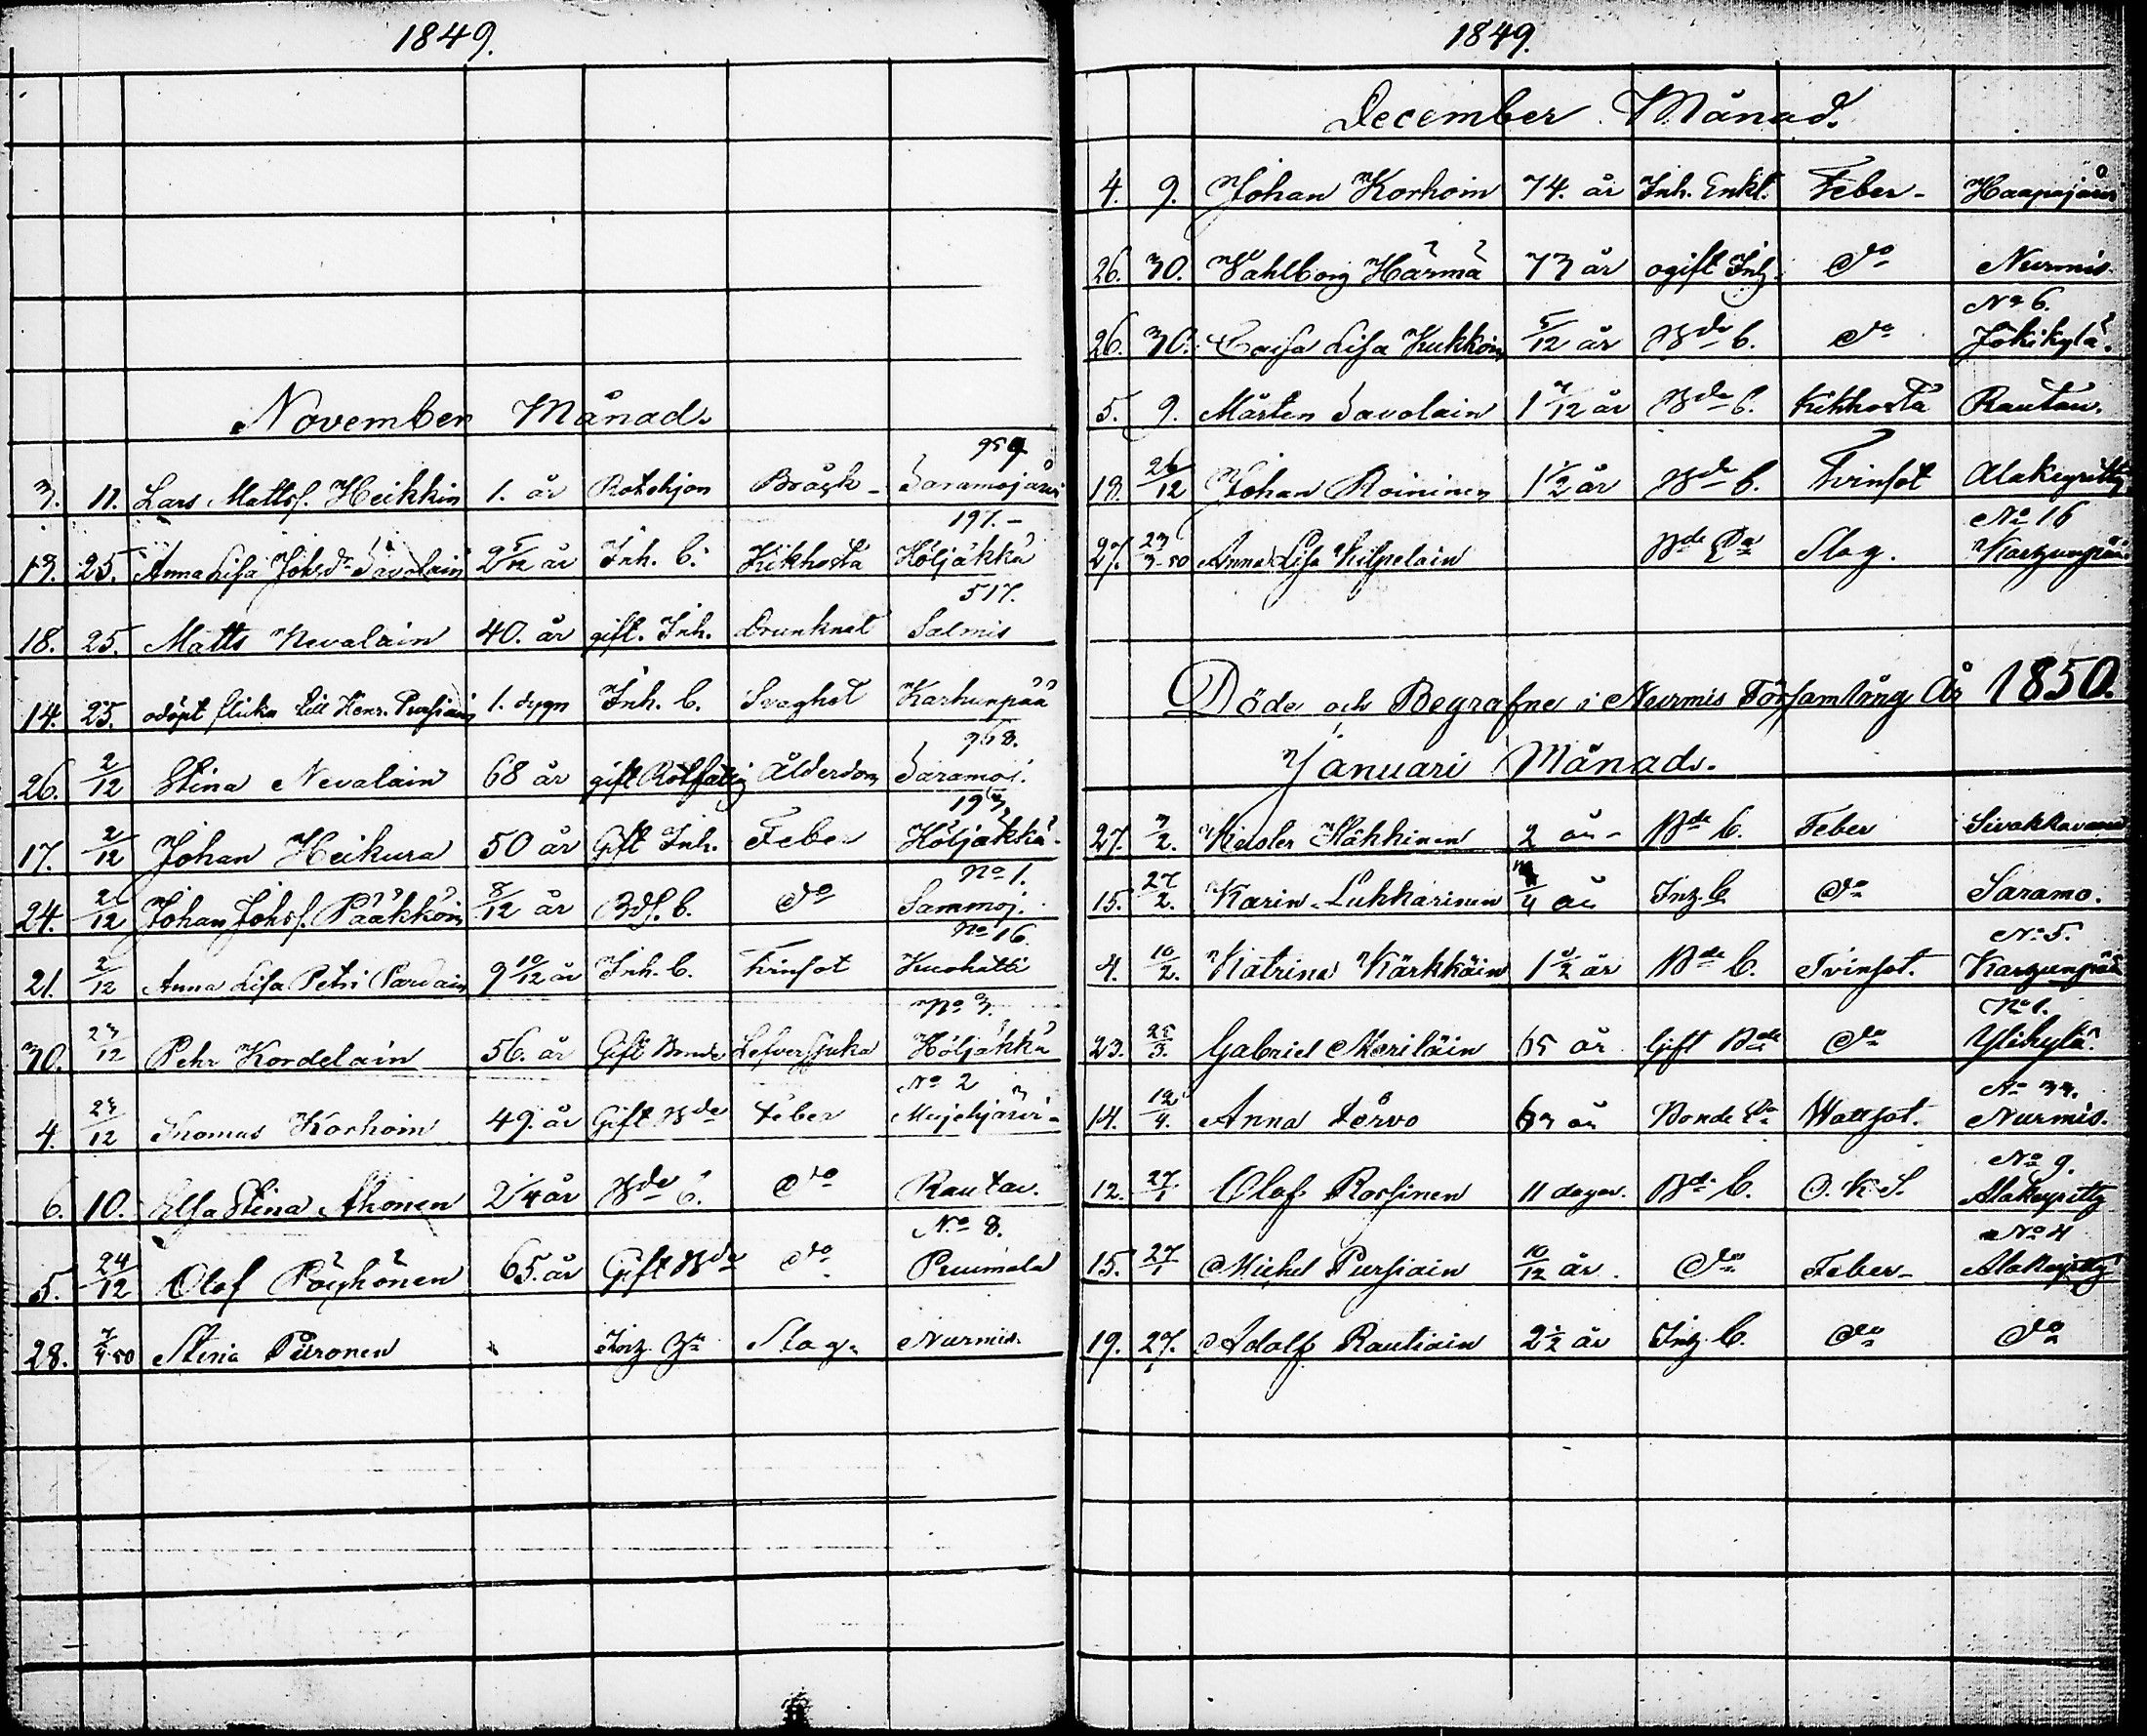 1849.
November Månad.
959
3. 11. Lars Mattsf. Heikkin 1. år Rotehjon Bråck - Saramojärvi
197.-
19. 25. Anna Lisa Johsdr Savolain 2 5/12 år Inh. b. Kikhosta Höljäkkä
517.
18. 25. Matts Nevalain 40. år gift. Inh. drunknat Salmis
14. 25. odöpt flicka till Henr. Pursiain 1. dygn Inh. b. Svaghet Karhunpää
968.
26. 2/12 Stina Nevalain 68 år gift Rotfattig Ålderdom Saramoj.
193
17. 2/12 Johan Heikura 50 år Gift Inh. Feber Höljäkkä.
No 1.
24. 2/12 Johan Johsf. Pääkköin 8/12 år Bdf. b. do Sammoj.
No 16.
21. 2/12 Anna Lisa Petri Pardain 9 10/12 år Inh. b. Tvinsot Kuohatti
No 3.
30. 23/12 Pehr Kordelain 56. år Gift Bonde Lefversjuka Höljäkkä
No 2
4. 23/12 Thomas Korhoin 49. år Gift Bde Feber Mujejärvi
6. 10. Elsa Stina Ahonen 2 1/4 år Bde b. do Rautav.
No 8.
5. 24/12 Olof Pöyhönen 65. år Gift Bde do Puumala
28. Stina Piironen Inh. Slag. Nurmis
1849.
December Månad.
4. 9. Johan Korhoin 74. år Inh. Enkl. Feber - Haapajärvi
26. 30. Wahlborg Härmä 73 år ogift Inh. do Nurmis
No 6.
26. 30. Caisa Lisa Kukkoin 5/12 år Bde b. do Jokikylä.
5. 9. Mårten Savolain 1 7/12 år Bde b. Kikhosta Rautav.
18. 26/12 Johan Roininen 1 1/2 år Bde b. Tvinsot Alakeyritty
No 16
27. 23/3-50 Anna Lisa Kilpelain Bde Da Slag. Karhunpää
Döde och Begrafne i Nurmis Församlång År 1850.
Januari Månad.
27. 3/2. Häkkinen 2 år - Bde b. Feber Sivakkavaara
15. 27/2. Karin Lukkarinen år Inh. b. do Saramo.
No 5.
4. 10/2. Katrina Kärkkäin 1 1/2 år Bde b. Tvinsot. Karhunpää
No 1.
23. 25/3. Gabriel Meriläin 65 år Gift Bde do Ylikylä.
No 33.
14. 12/4. Anna Tervo 63 år Bonde Da Wattsot. Nurmis.
No 9.
12. 27/1 Olof Rossinen 11 dagar. Bde b. O. K. S. Alakeyritty
No 4
15. 27/1 Michel Pursiain 10/12 år. do Feber - Alakeyritty
19. 27/1 Adolf Rautiain 2 1/2 år Inh. b. do do